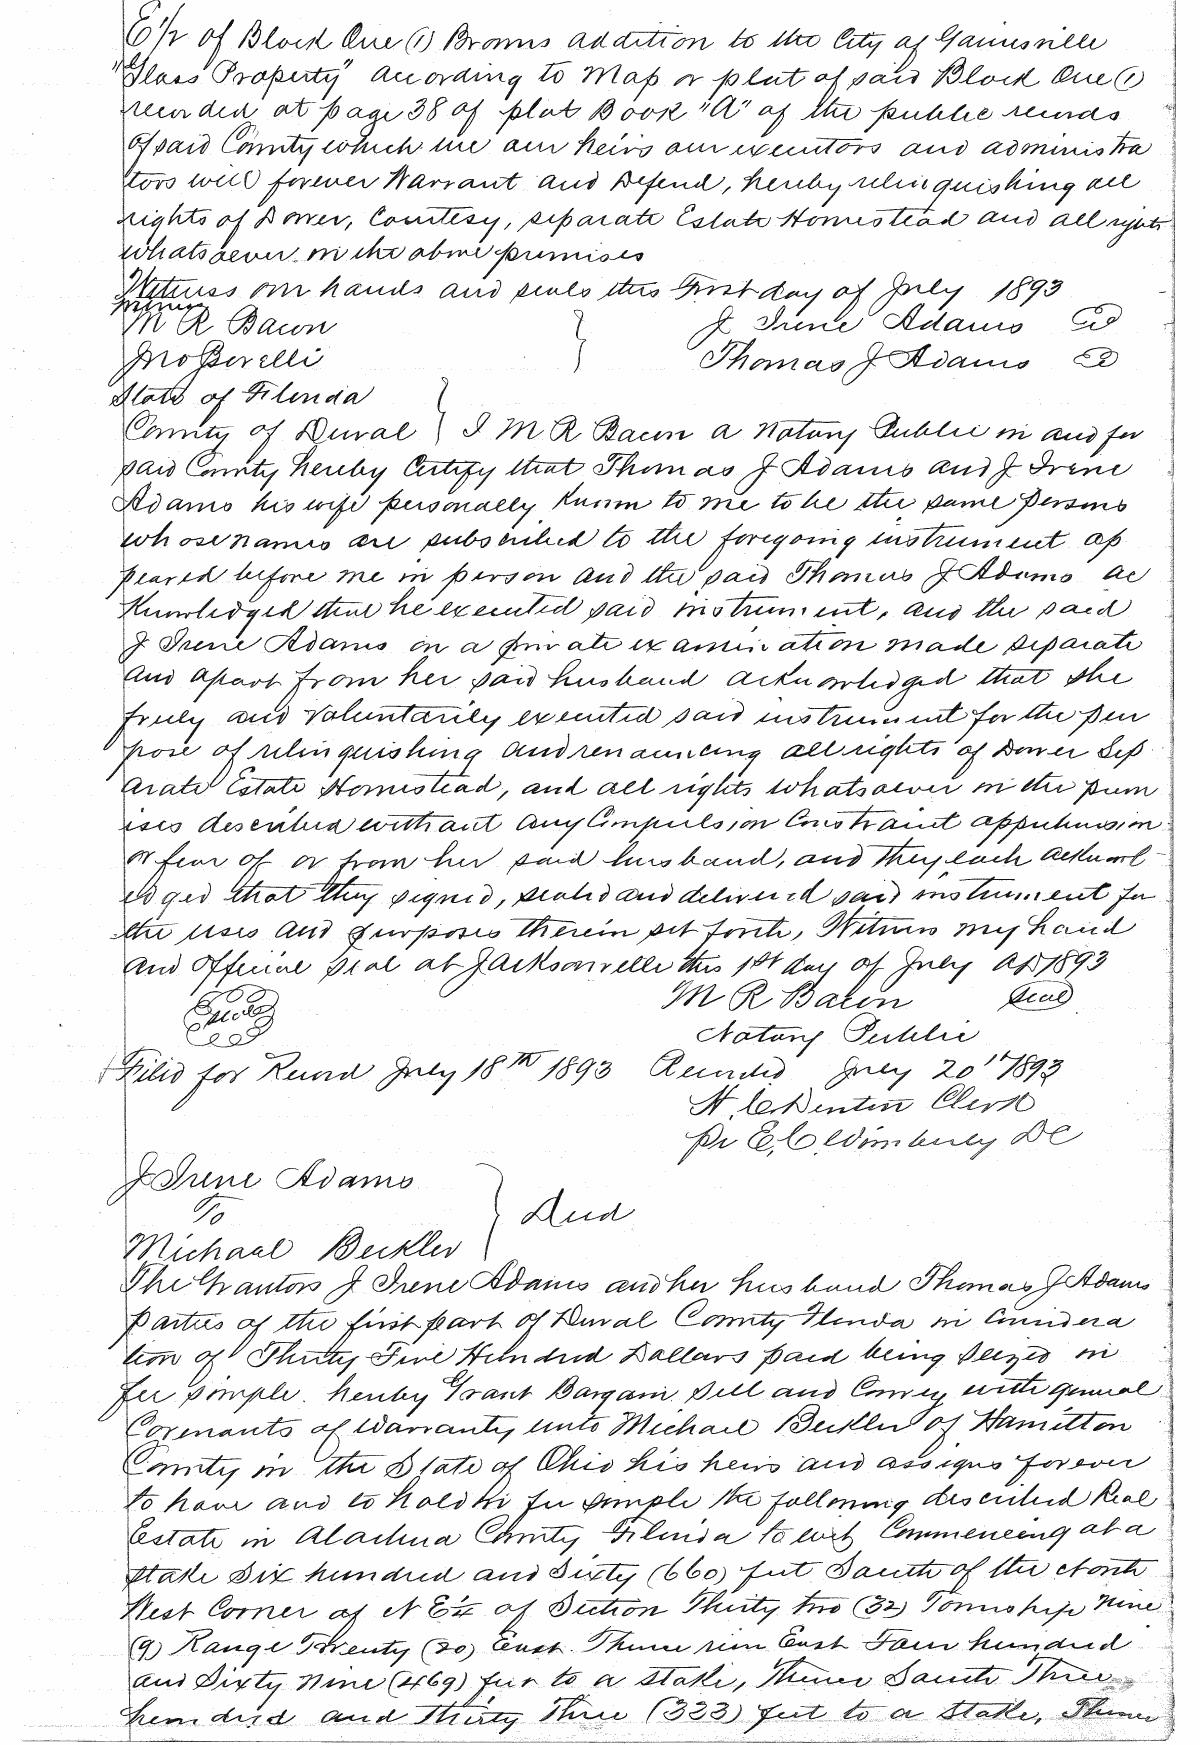 E 1/2 of Block One (1) Browns addition to the City of Gainesville
"Glass Property" according to Map or plat of said Block One (1)
recorded at page 38 of plat Book "A" of the public records
of said County which we our heirs our executors and administra
tors will forever Warrant and Defend, hereby relinquishing all
rights of Dower, Courtesy, separate Estate Homestead and all rights
whatsoever in the above premises
Witness our hands and seals this First day of July 1893
Witness
M R Bacon } J Irene Adams
Jno Thomas J Adams
State of Florida
County of Duval } I M R Bacon a Notary Public in and for
said County hereby Certify that Thomas J Adams and J Irene
Adams his wife personally known to me to be the same persons
whose names are subscribed to the foregoing instrument ap
peared before me in person and the said Thomas J Adams ac
knowledged that he executed said instrument, and the said
J Irene Adams on a private examination made separate
and apart from her said husband acknowledged that she
freely and voluntarily executed said instrument for the pur
pose of relinquishing and renouncing all rights of Dower Sep
arate Estate Homestead, and all rights whatsoever in the prem
ises described without any Compulsion Constraint apprehension
or fear of or from her said husband, and they each acknowl
edged that they signed, sealed and delivered said instrument for
the uses and purposes therein set forth, Witness my hand
and Official seal at Jacksonville this 1st day of July AD 1893
M R Bacon Seal
Notary Public
Filed for Record July 18th 1893 Recorded July 20th 1893
Denton Clerk
Pr E. C. Wimberly DC
J Irene Adams
To } Deed
Michael Beckler
The Grantors J Irene Adams and her husband Thomas J Adams
parties of the first part of Duval County Florida in Considera
tion of Thirty Five Hundred Dollars paid being Seized in
fee simple. hereby Grant Bargain Sell and Convey with general
Covenants of Warranty unto Michael Beckler of Hamilton
County in the State of Ohio his heirs and assigns forever
to have and to hold in fee simple the following described Real
Estate in Alachua County Florida to wit Commencing at a
stake Six hundred and Sixty (660) feet South of the North
West Corner of N E 1/4 of Section Thirty two (32) Township Nine
(9) Range Twenty (20) East. Thence run East Four hundred
and Sixty Nine (469) feet to a stake, Thence South Three
hundred and Thirty Three (333) feet to a stake, Thence